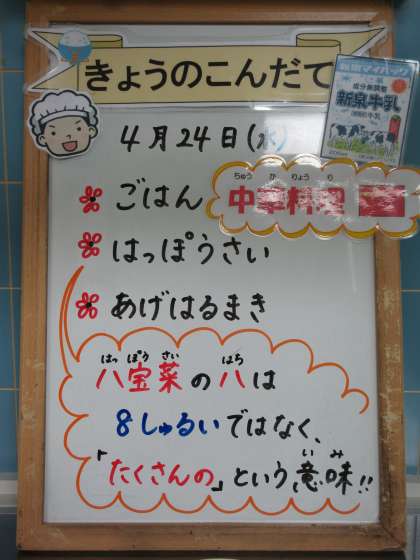 きょうのこんだて
4月24日(水)
成分無調整
新泉牛乳
ごはん
ちゅう か りょう り
中華料理
はっぽうさい
あげはるまき
はっ ぽう さい はち
八宝菜の八は
8しゅるいではなく、
い み
「たくさんの」という意味!!